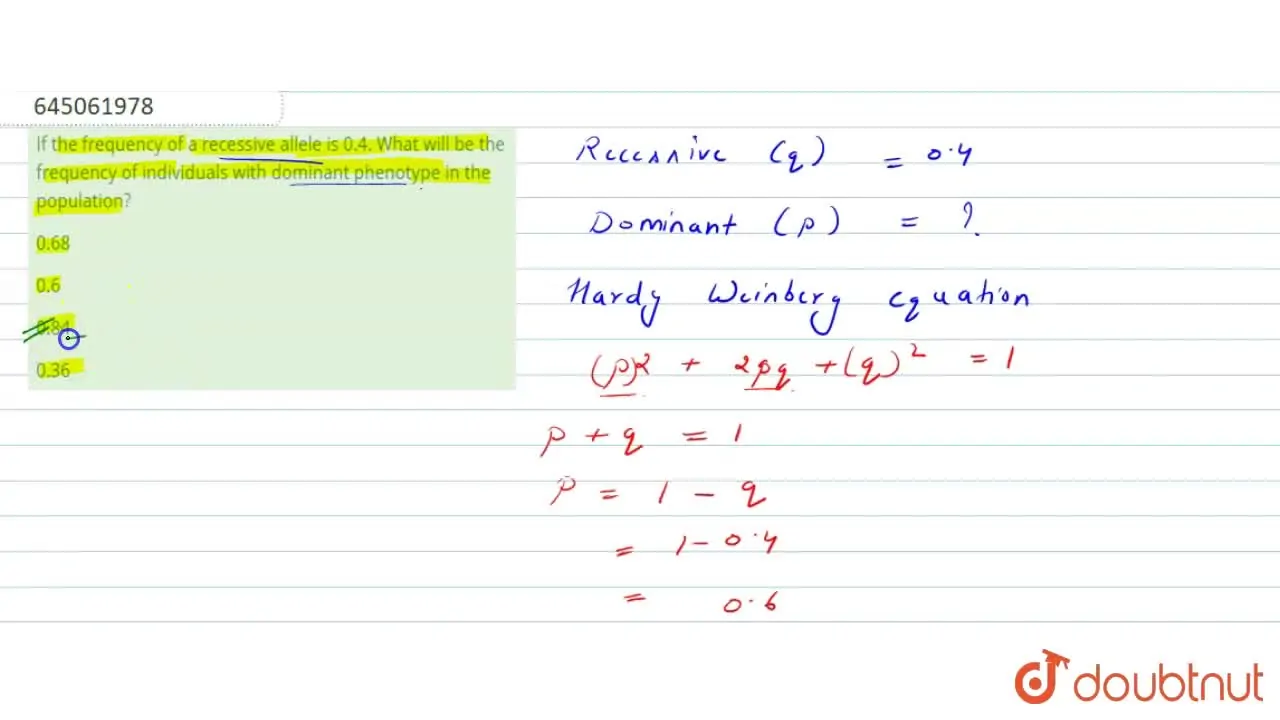 645061978
If the frequency of a recessive allele is 0.4. What will be the
frequency of individuals with dominant phenotype in the
population?
0.68
0.6
0.84
0.36
Recessive (q) = 0.4
Dominant (p) = ?
Hardy Weinberg equation
(p)2 + 2pq + (q)2 = 1
p + q = 1
p = 1 - q
= 1 - 0.4
= 0.6
doubtnut